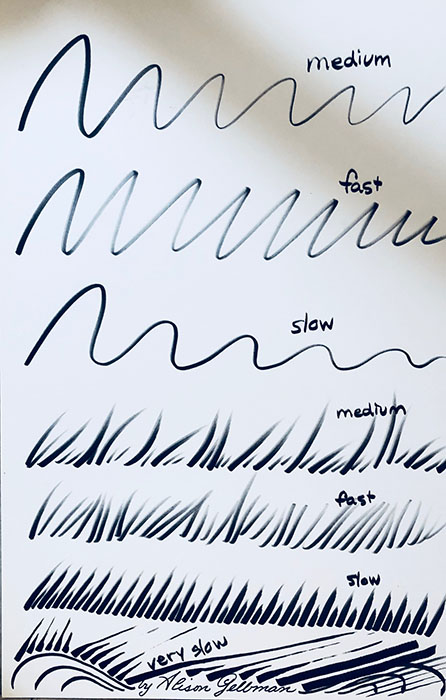 medium
fast
slow
medium
fast
slow
very slow
by Alison Gellman